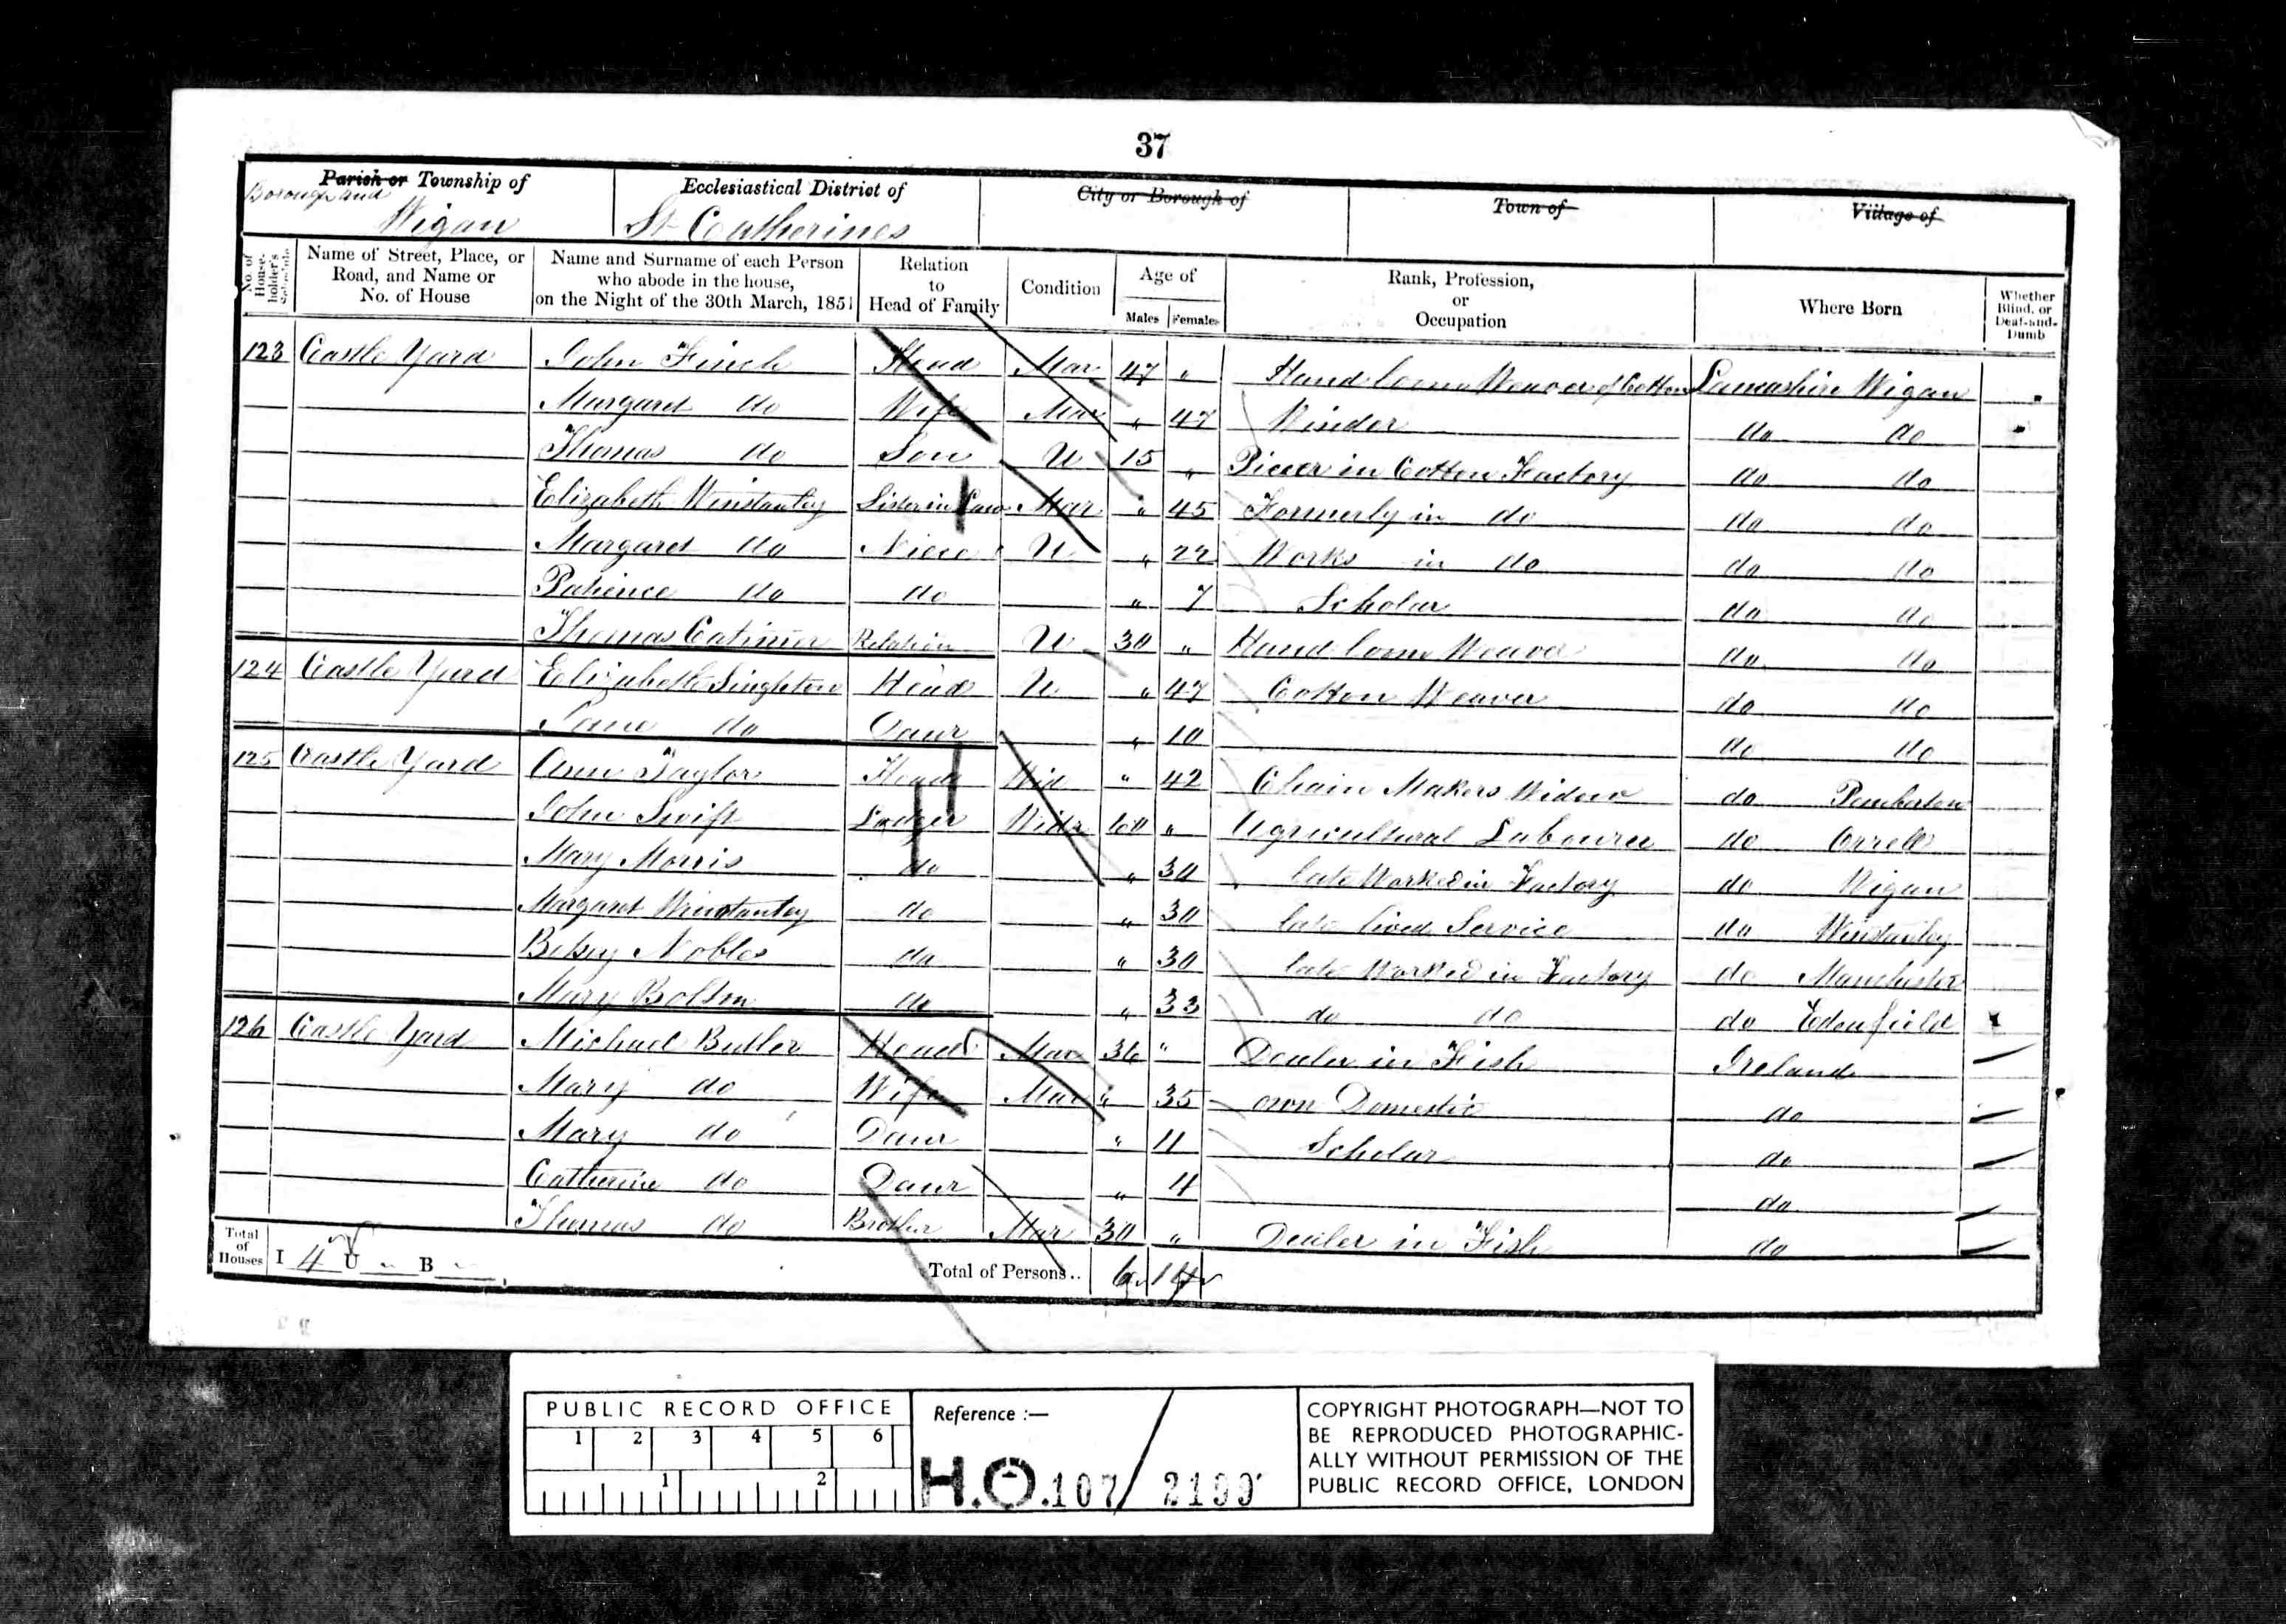 37
Parish or Township of
Borough and
Wigan
Ecclesiastical District of
St Catherines
City or Borough of
Town of
Village of
No. of House-holder's Schedule
Name of Street, Place, or Road, and Name or No. of House
Name and Surname of each Person who abode in the house, on the Night of the 30th March, 1851
Relation to Head of Family
Condition
Age of
Males Females
Rank, Profession, or Occupation
Where Born
Whether Blind, or Deaf-and-Dumb
123 Castle Yard John Finch Head Mar 47 " Hand loom Weaver of Cotton Lancashire Wigan
Margaret do Wife Mar " 47 Winder do do
Thomas do Son U 15 " Piecer in Cotton Factory do do
Elizabeth Winstanley Sister in Law Mar " 45 Formerly in do do do
Margaret do Niece U " 22 Works in do do do
Patience do do " 7 Scholar do do
Thomas Relation U 30 " Hand loom Weaver do do
124 Castle Yard Elizabeth Singleton Head U " 47 Cotton Weaver do do
do Daur " 10 do do
125 Castle Yard Ann Taylor Head Wid " 42 Chain Makers Widow do Pemberton
John Swift Lodger Widr 60 " Agricultural Labourer do Orrell
Mary Morris do " 30 late Worked in Factory do Wigan
Margaret Winstanley do " 30 late lived Service do Winstanley
Betsy Nobles do " 30 late Worked in Factory do Manchester
Mary Bolton do " 33 do do do Edenfield
126 Castle Yard Michael Butler Head Mar 36 " Dealer in Fish Ireland
Mary do Wife Mar " 35 own Domestic do
Mary do Daur " 11 Scholar do
Catherine do Daur " 4 do
Thomas do Brother Mar 30 " Dealer in Fish do
Total of Houses I 4 U B
Total of Persons.. 6 14
PUBLIC RECORD OFFICE
1 2 3 4 5 6
1 2
Reference :—
H.O. 107 / 2199
COPYRIGHT PHOTOGRAPH—NOT TO
BE REPRODUCED PHOTOGRAPHIC-
ALLY WITHOUT PERMISSION OF THE
PUBLIC RECORD OFFICE, LONDON